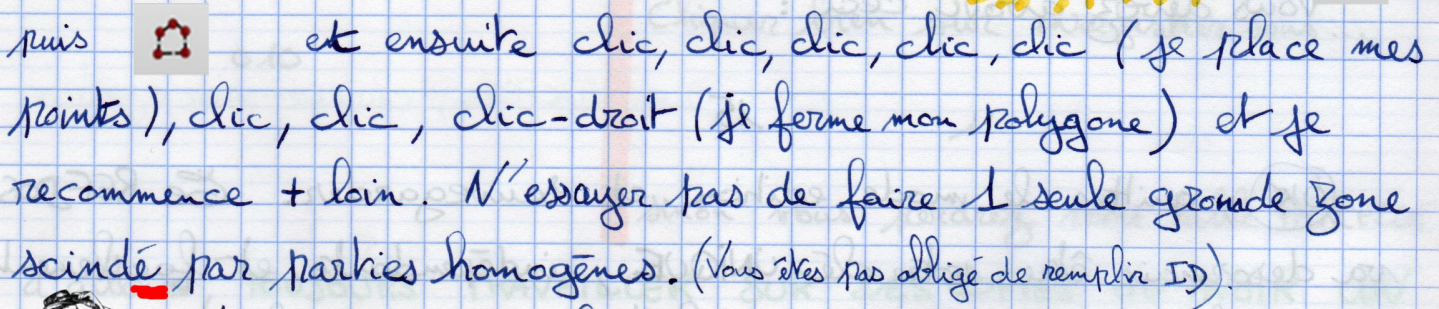 puis et ensuite clic, clic, clic, clic, clic (je place mes
points), clic, clic, clic-droit (je ferme mon polygone) et je
recommence + loin. N'essayer pas de faire 1 seule grande zone
scindé par parties homogènes. (Vous êtes pas obligé de remplir ID).